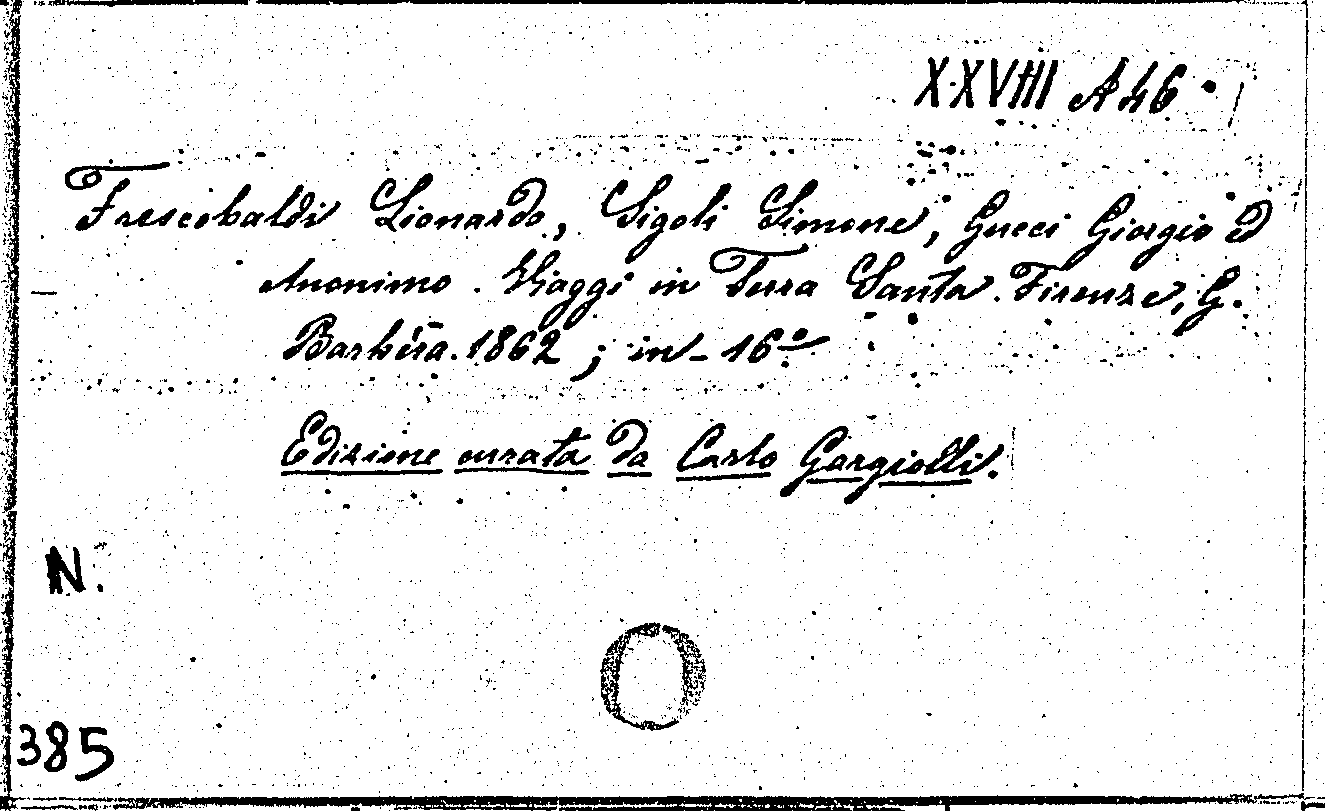 XXVIII A 46.
Frescobaldi Lionardo, Sigoli Simone, Gucci Giorgio ed
Anonimo. Viaggi in Terra Santa. Firenze, G.
Barbèra. 1862; in-16º
Edizione curata da Carlo Gargiolli.
N.
385